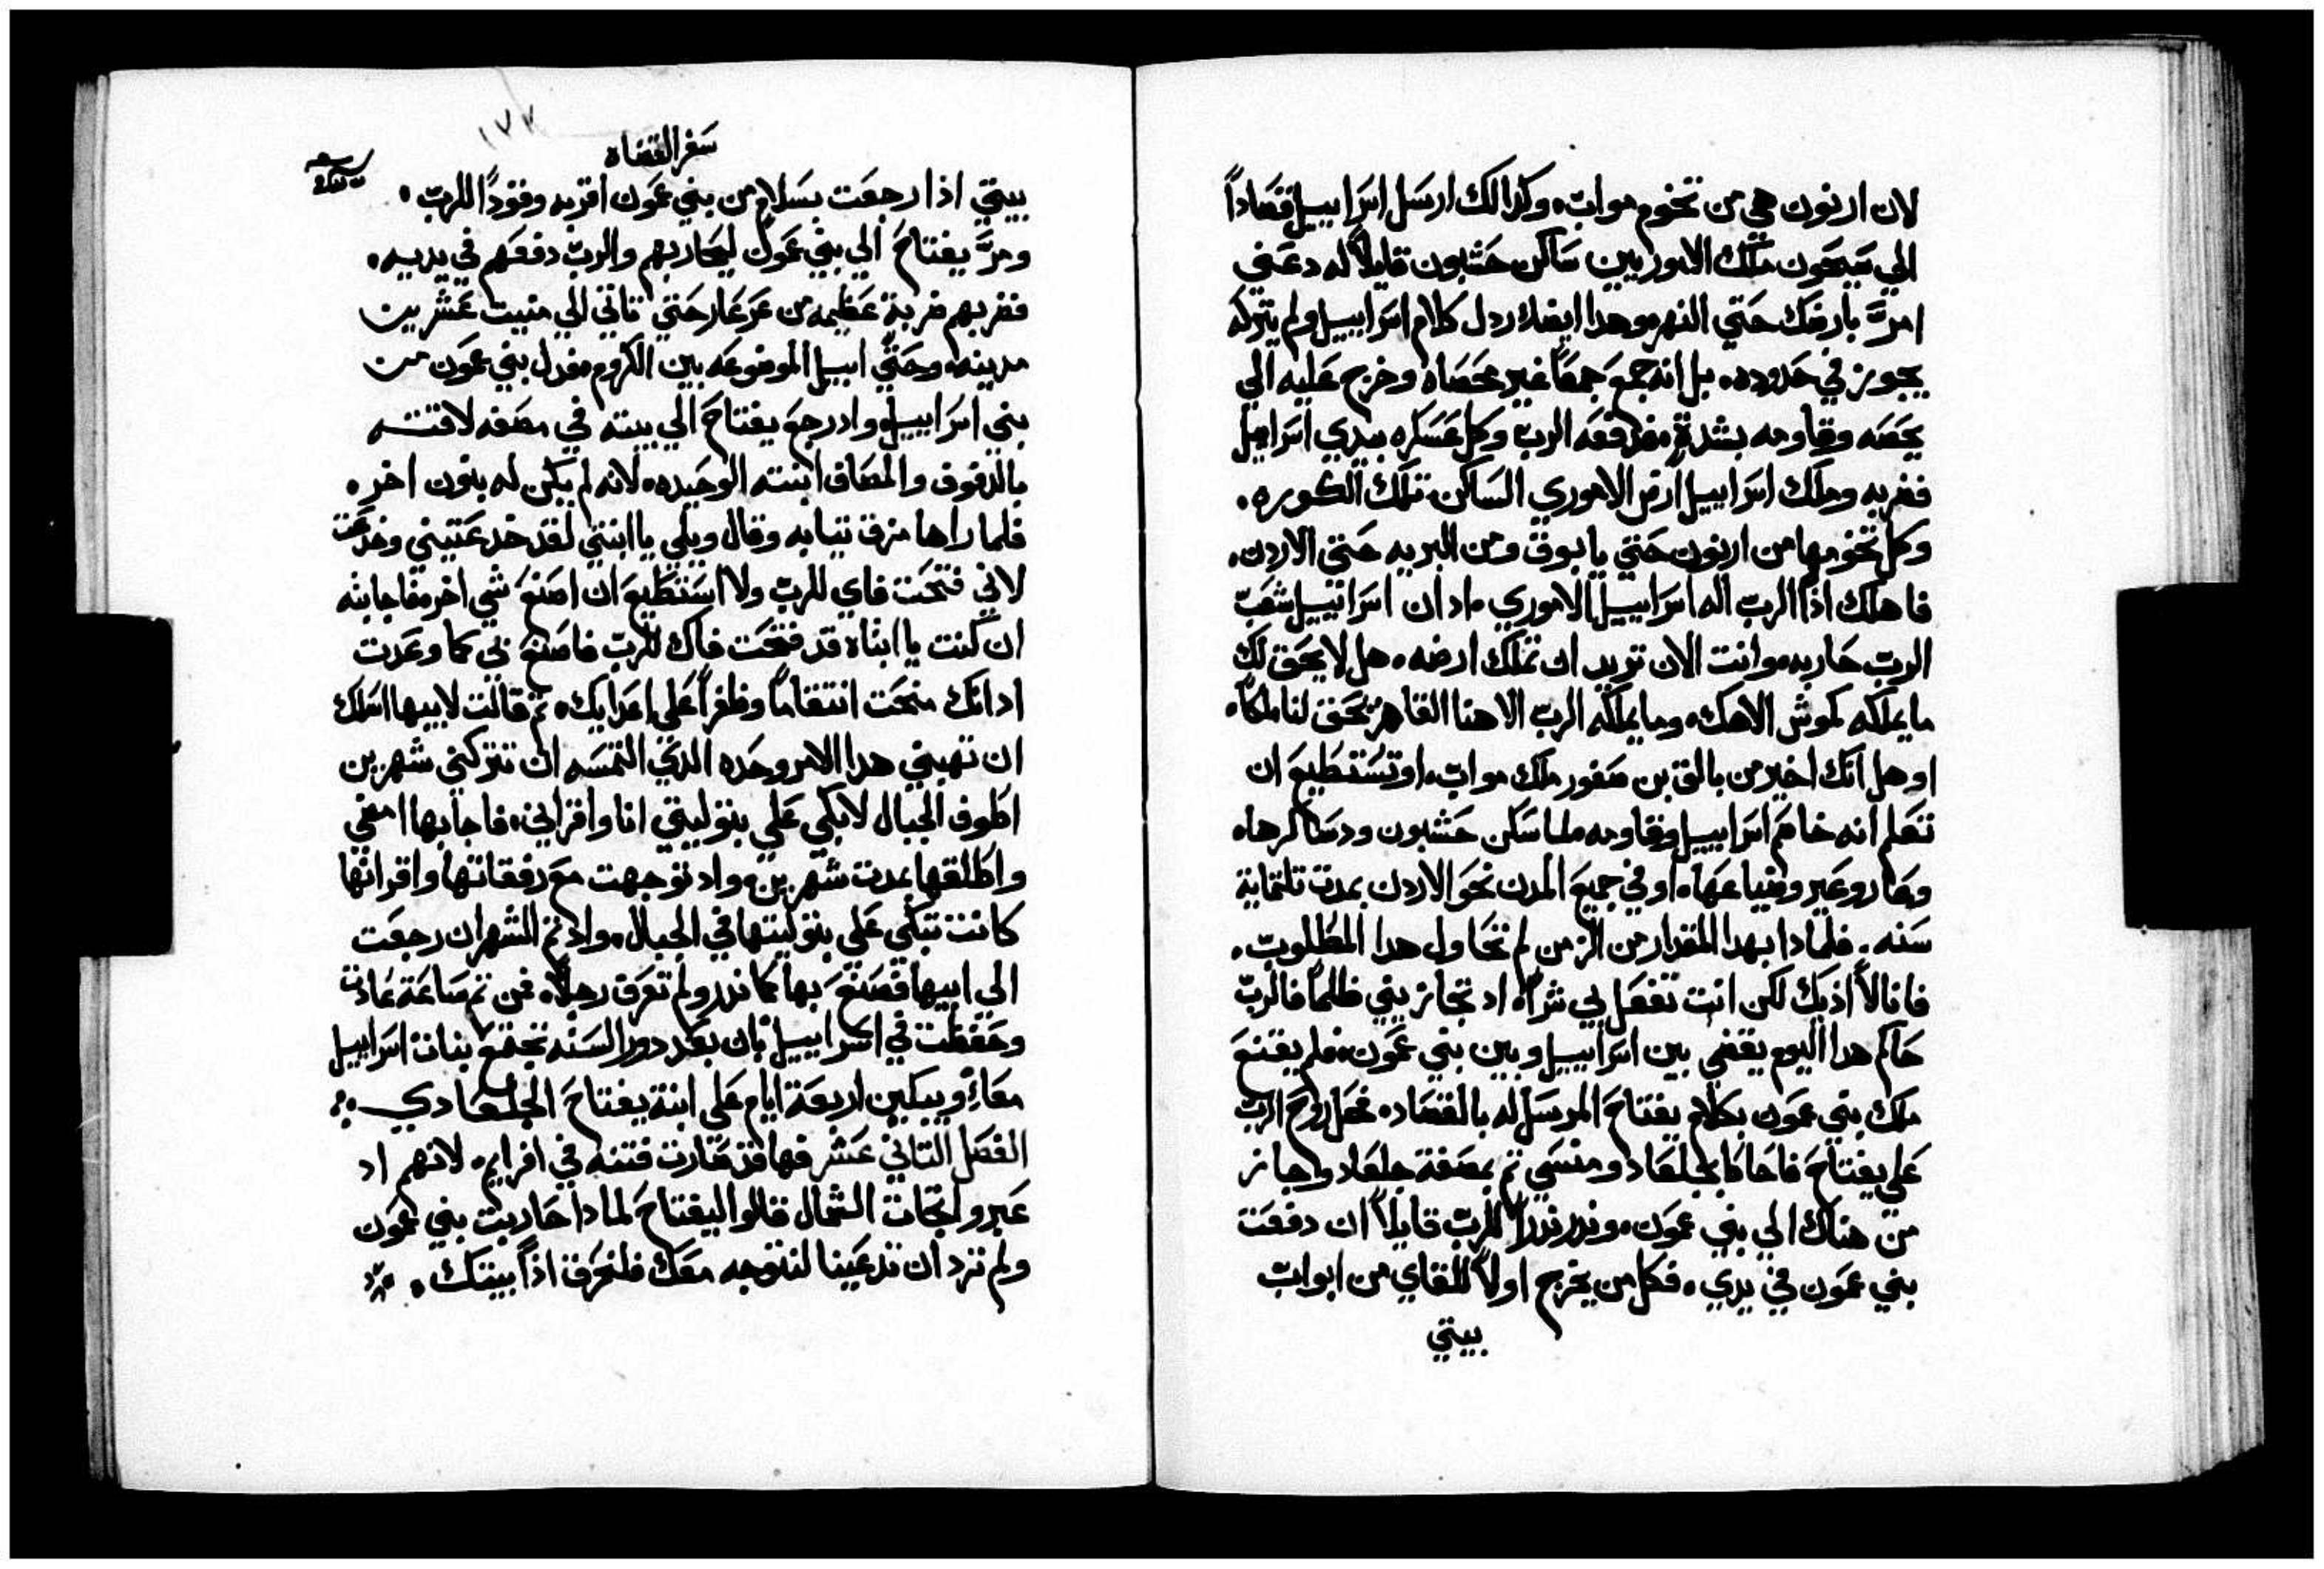 لان ارنون هي من تخوم مواب، وكدالك ارسل اسراييل قصاداً
الي سيحون ملك الاموريين ساكن حشبون قايلاً له دعني
امرَّ بارضك حتي النهر، وهدا ايضا ردل كلام اسراييل ولم يتركه
يجوز في حدوده، بل انه جمع جمعاً غير محصاه وخرج عليه الي
يحصه وقاومه بشدةٍ، فدفعه الرب وكل عسكره بيدي اسراييل
فضربه وملك اسراييل ارض الاموري الساكن تلك الكوره،
وكل تخومها من ارنون حتي يابوق ومن البريه حتي الاردن،
فاهلك اذاً الرب اله اسراييل الاموري، اد ان اسراييل شعب
الرب حاربه، وانت الان تريد ان تملك ارضه، هل لا يحق لك
ما يملكه كموش الاهك، وما يملكه الرب الاهنا القاهر يحق لنا ملكاً،
او هل انك اخير من بالق بن صفور ملك مواب، او تستطيع ان
تعلم انه خاصم اسراييل وقاومه لما سكن حشبون ودساكرها،
وعاروعير وضياعها، او في جميع المدن نحو الاردن بمدت تلتماية
سنه، فلمادا بهدا المقدار من الزمن لم تحاول هدا المطلوب،
فانا لا اذيك لكن انت تفعل بي شراً، اد تجازيني ظلماً فالرب
حاكم هدا اليوم يقضي بين اسراييل وبين بني عمون، فلم يقنع
ملك بني عمون بكلام يفتاح المرسل له بالقصاد، فحل روح الرب
علي يفتاح فاحاط بجلعاد ومنسي تم بمصفة جلعاد واجاز
من هناك الي بني عمون، وندر ندراً للرب قايلاً ان دفعت
بني عمون في يدي، فكل من يخرج اولاً للقاي من ابواب
بيتي
١٧٧
سفر القضاه
بيتي اذا رجعت بسلام من بني عمون اقربه وقوداً للرب،
ومرَّ يفتاح الي بني عمون ليحاربهم والرب دفعهم في يديه،
فضربهم ضربة عظيمه من عرعار حتي تاتي الي منيت عشرين
مدينه، وحتي ابيل الموضوعه بين الكروم، فدل بني عمون من
بني اسراييل، واد رجع يفتاح الي بيته في مصفه لاقته
بالدفوف والمصاف ابنته الوحيده، لانه لم يكن له بنون اخر،
فلما راها مزق تيابه وقال ويلي يا ابنتي لقد خدعتيني وخدعت
لاني فتحت فاي للرب ولا استطيع ان اصنع شي اخر، فاجابته
ان كنت يا ابتاه قد فتحت فاك للرب فاصنع بي كما وعدت
اد انك منحت انتقاماً وظفراً علي اعدايك، تم قالت لابيها اسلك
ان تهبني هدا الامر وحده الدي التمسه ان تتركني شهرين
اطوف الجبال لابكي علي بتوليتي انا واقراني، فاجابها امضي
واطلقها بمدت شهرين، واد توجهت مع رفقاتها واقرانها
كانت تبكي علي بتوليتها في الجبال، واد تم الشهران رجعت
الي ابيها فصنع بها كما ندر ولم تعرف رجلاً، فمن تم صاعة عادت
وحفظت في اسراييل بان بعد دور السنه تجتمع بنات اسراييل
معاً، ويبكين اربعة ايام علي ابنة يفتاح الجلعادي
الفصل التاني عشر فها قد صارت فتنه في افرايم، لانهم اد
عبرو اتجات الشمال قالوا ليفتاح لمادا حاربت بني عمون
ولم ترد ان تدعينا لنتوجه معك فلنحرق اذاً بيتك،